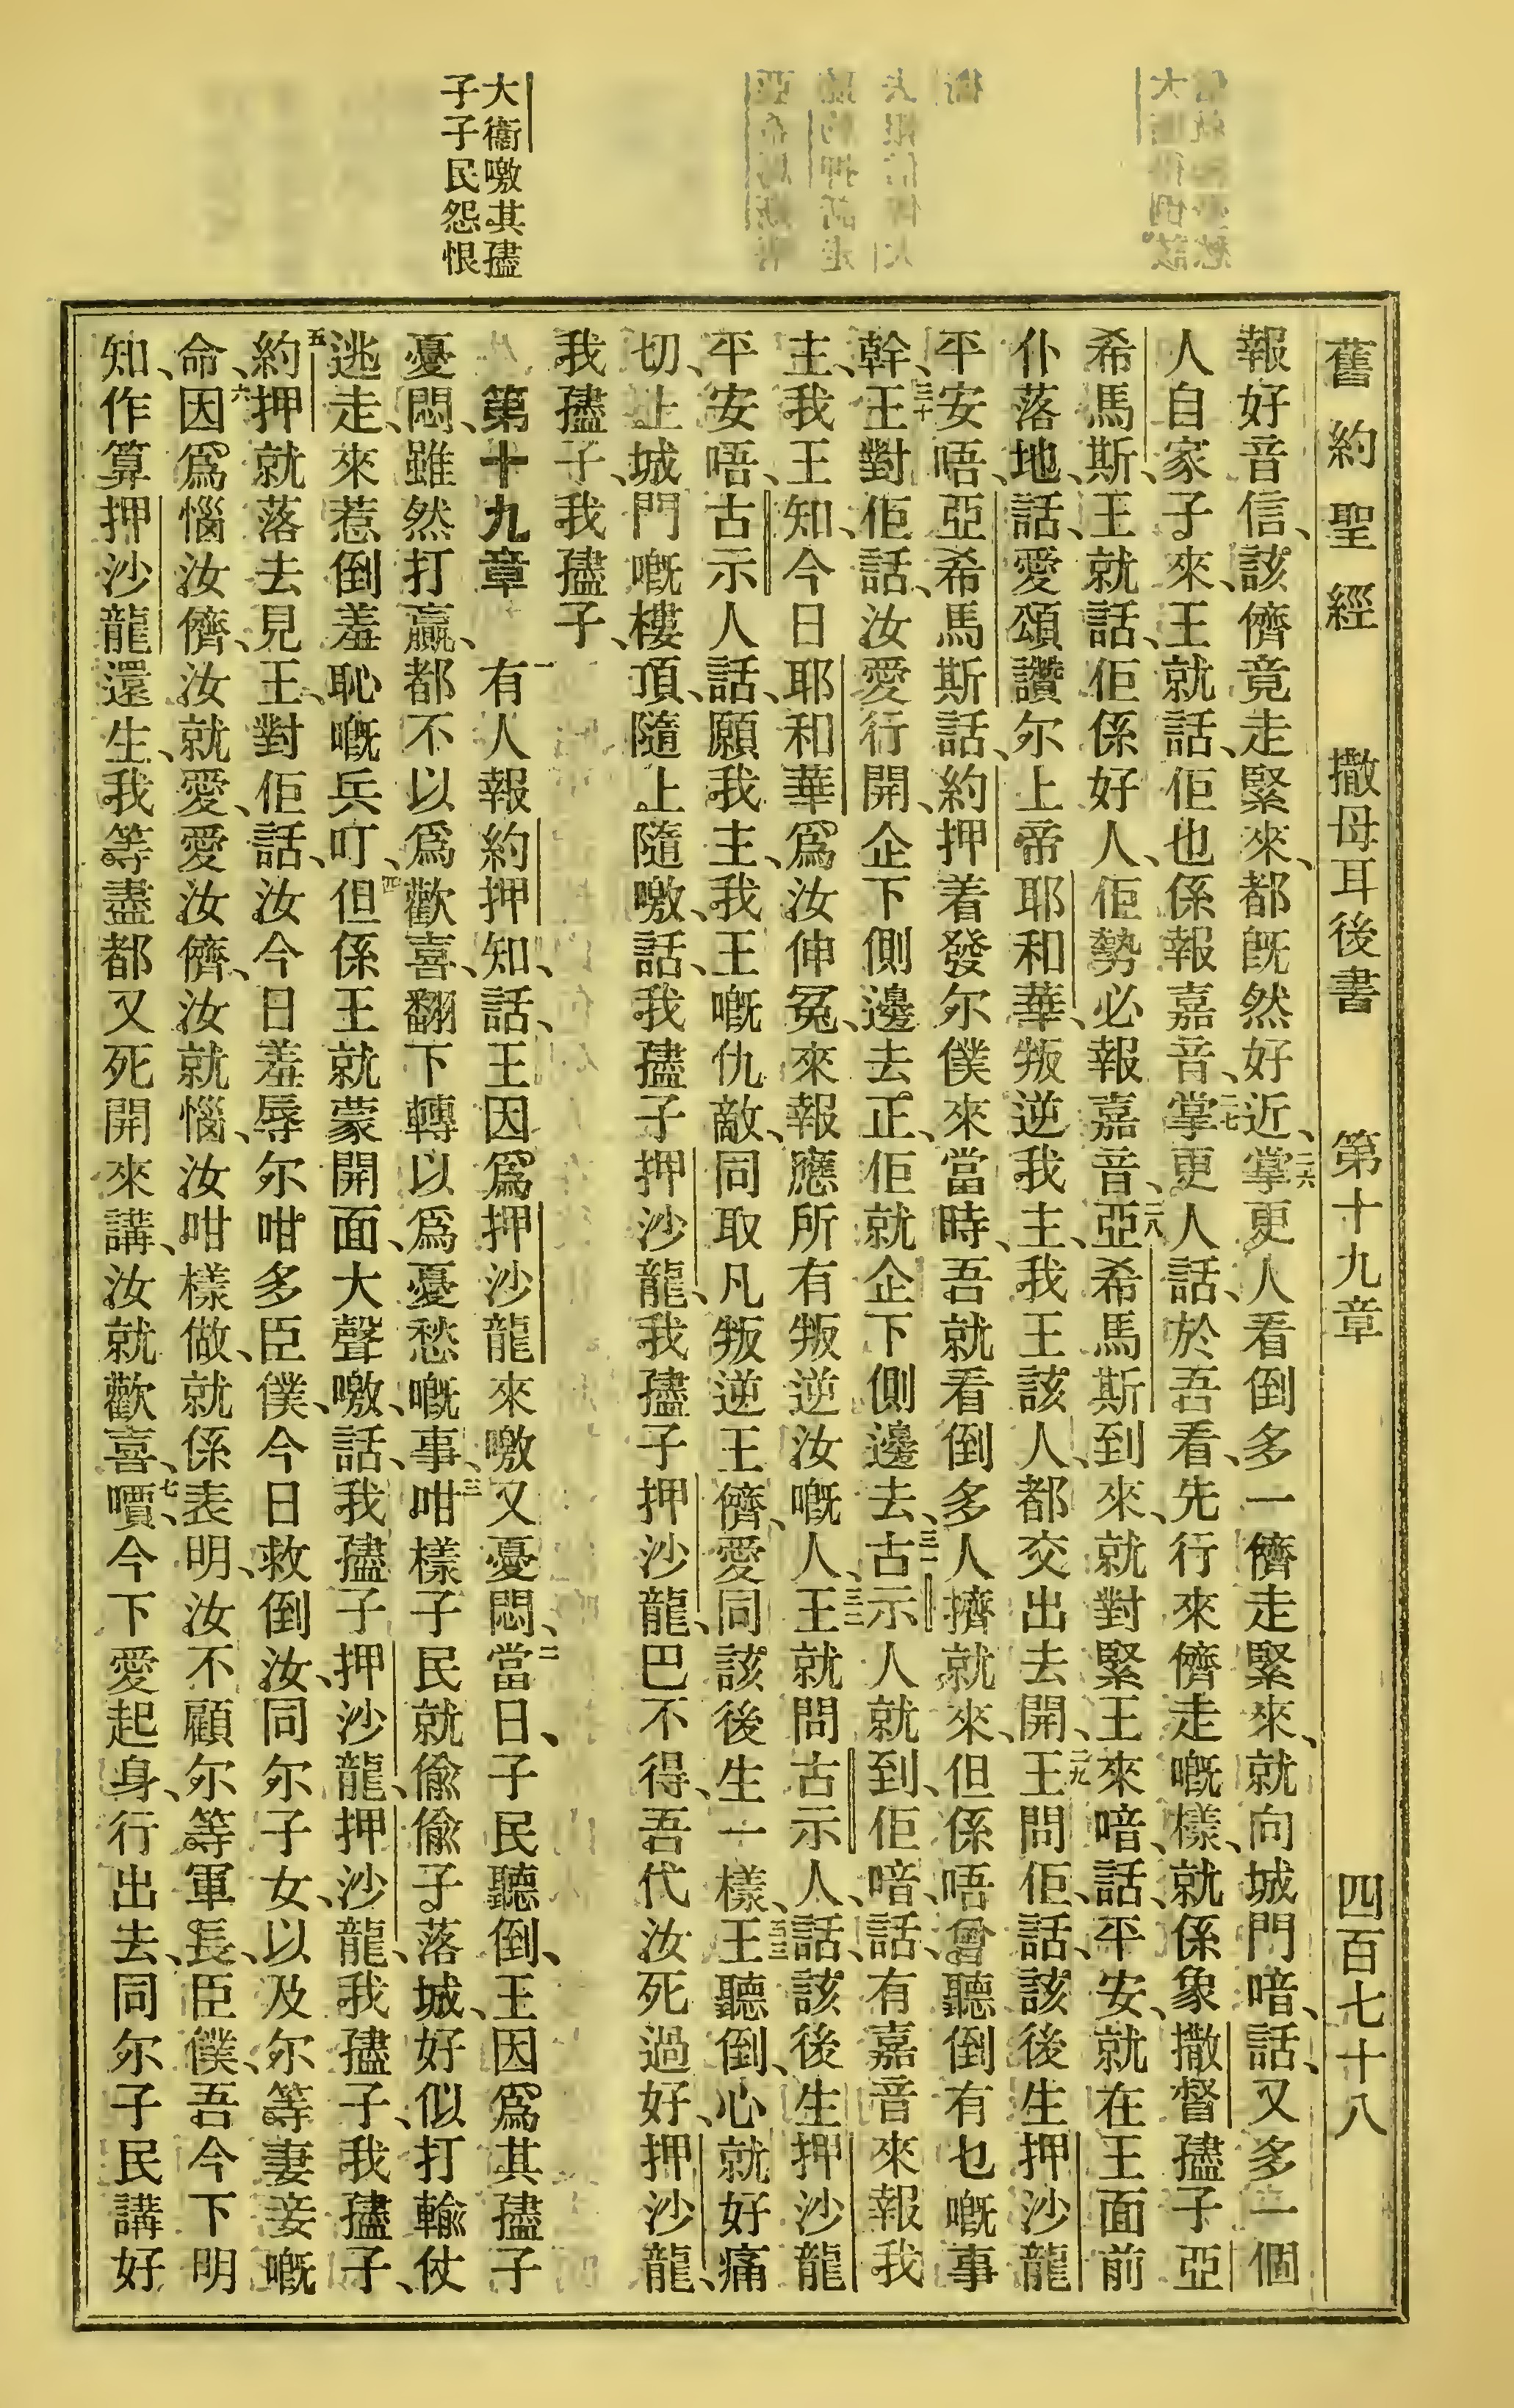 舊約聖經 撒母耳後書 第十九章 四百七十八
報好音信、該儕竟走緊來、都旣然好近、二六掌更人看倒多一儕走緊來、就向城門喑、話、又多一個
人自家子來、王就話、佢也係報嘉音、二七掌更人話、於吾看、先行來儕走嘅樣、就係象撒督孻子亞
希馬斯、王就話、佢係好人、佢勢必報嘉音、二八亞希馬斯到來、就對緊王來喑、話、平安、就在王面前
仆落地、話、愛頌讚尔上帝耶和華、叛逆我主、我王該人、都交出去開、二九王問佢、話、該後生押沙龍
平安唔、亞希馬斯話、約押着發尔僕來當時、吾就看倒多人擠就來、但係唔曾聽倒有乜嘅事
幹、三十王對佢話、汝愛行開、企下側邊去正、佢就企下側邊去、三一古示人就到、佢喑、話、有嘉音來報我
主、我王知、今日耶和華爲汝伸冤、來報應所有叛逆汝嘅人、三二王就問古示人、話、該後生押沙龍
平安唔、古示人話、願我主、我王嘅仇敵、同取凡叛逆王儕、愛同該後生一樣、三三王聽倒、心就好痛
切、上城門嘅樓頂、隨上隨噭、話、我孻子押沙龍、我孻子押沙龍、巴不得、吾代汝死過好、押沙龍、
我孻子、我孻子、
大衞噭其孻
子子民怨恨
第十九章 一有人報約押知、話、王因爲押沙龍來噭又憂悶、二當日、子民聽倒、王因爲其孻子
憂悶、雖然打贏、都不以爲歡喜、翻下轉以爲憂愁嘅事、三咁樣子民就偸偸子落城、好似打輸仗
逃走、來惹倒羞恥嘅兵叮、四但係王就蒙開面、大聲噭、話、我孻子押沙龍、押沙龍、我孻子、我孻子、
五約押就落去見王、對佢話、汝今日羞辱尔咁多臣僕、今日救倒汝、同尔子女、以及尔等妻妾嘅
命、六因爲惱汝儕、汝就愛、愛汝儕、汝就惱、汝咁樣做、就係表明、汝不顧尔等軍長臣僕、吾今下明
知、作算押沙龍還生、我等盡都又死開來講、汝就歡喜、七嘪、今下愛起身、行出去、同尔子民講好